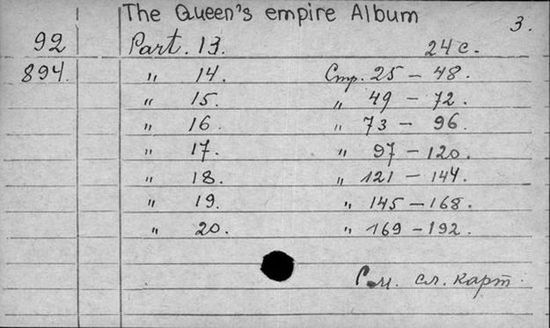 The Queen's empire Album
3.
92 Part. 13. 24 с.
894. " 14. Стр. 25 - 48.
" 15. " 49 - 72.
" 16. " 73 - 96.
" 17. " 97 - 120.
" 18. " 121 - 144.
" 19. " 145 - 168.
" 20. " 169 - 192.
См. сл. карт.